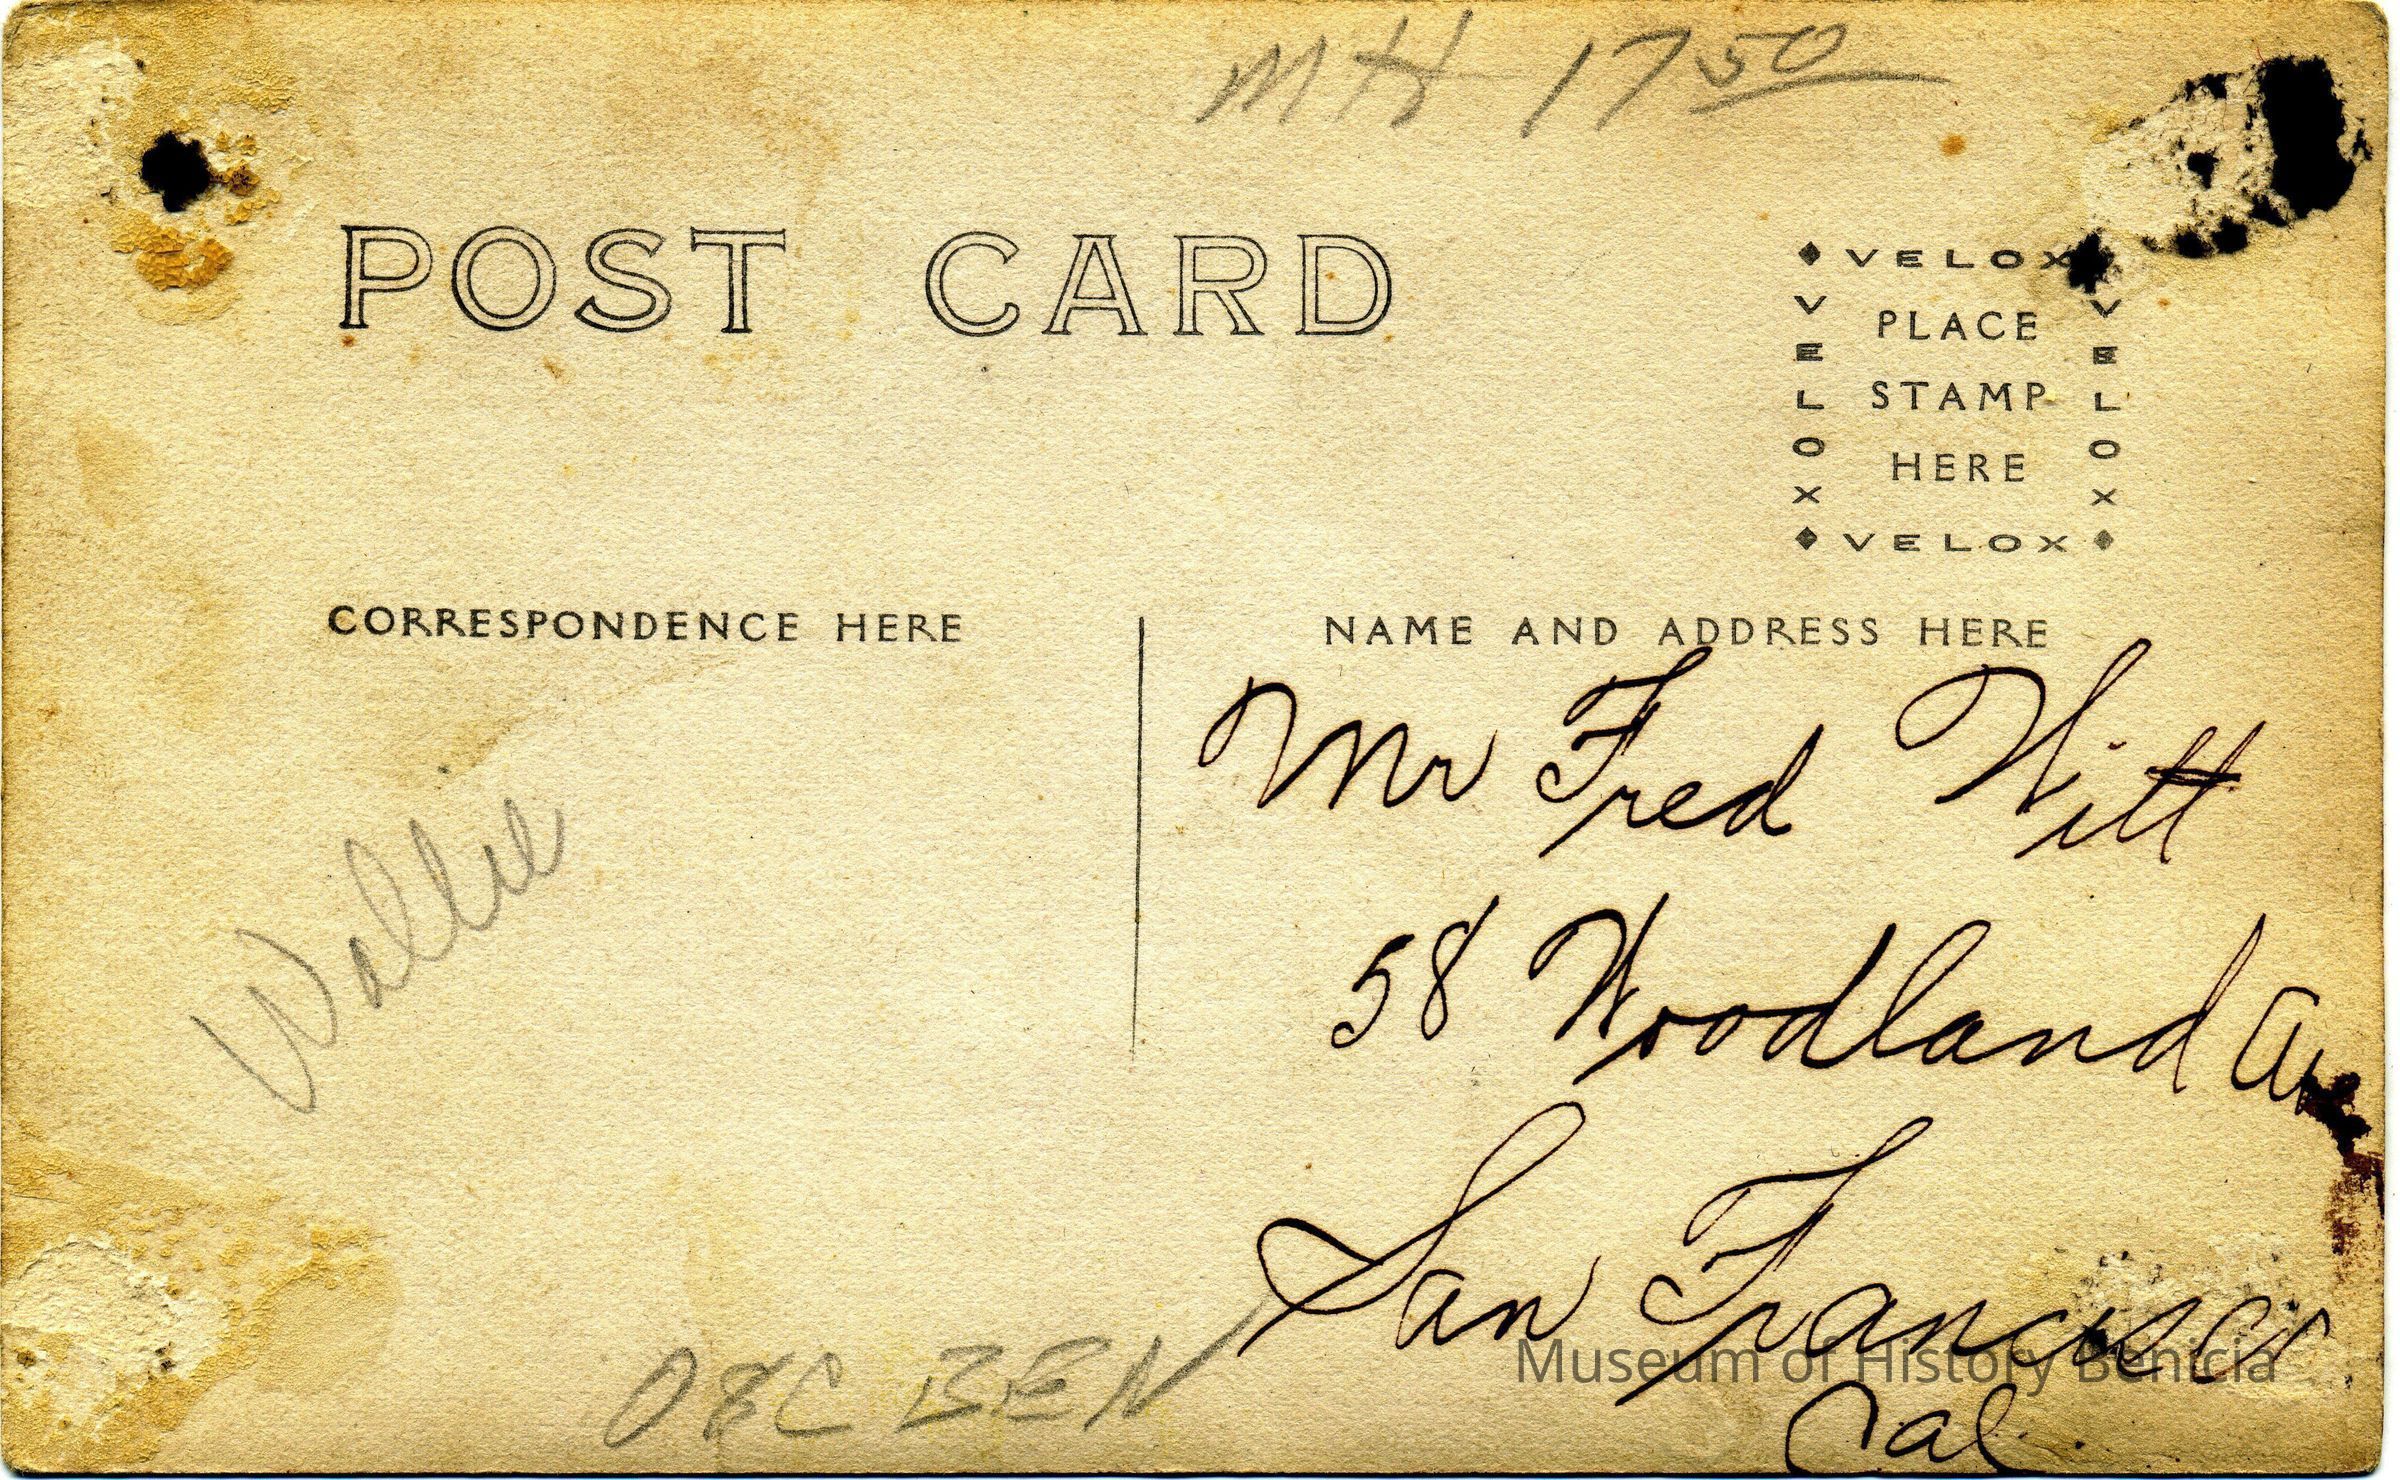 MH 17 50
POST CARD
VELOX
VELOX
PLACE
STAMP
HERE
VELOX
VELOX
CORRESPONDENCE HERE
NAME AND ADDRESS HERE
Mr Fred Witt
58 Woodland Ave
San Francisco
Cal.
Wallie
BEN
Museum of History Benicia